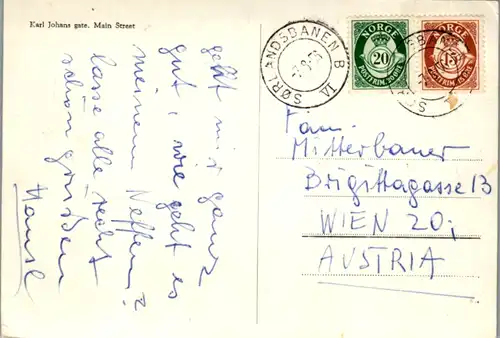 Karl Johans gate. Main Street
geht mir ganz
gut, wie geht es
meinem Neffen?
lasse alle recht
schön grüßen
Hansl
NORGE
20
POSTFRIM. 20 ØRE
NORGE
15
POSTFRIM. 15 ØRE
SØRLANDSBANEN B
TA
Fam.
Mitterbauer
Brigittagasse 13
WIEN 20;
AUSTRIA